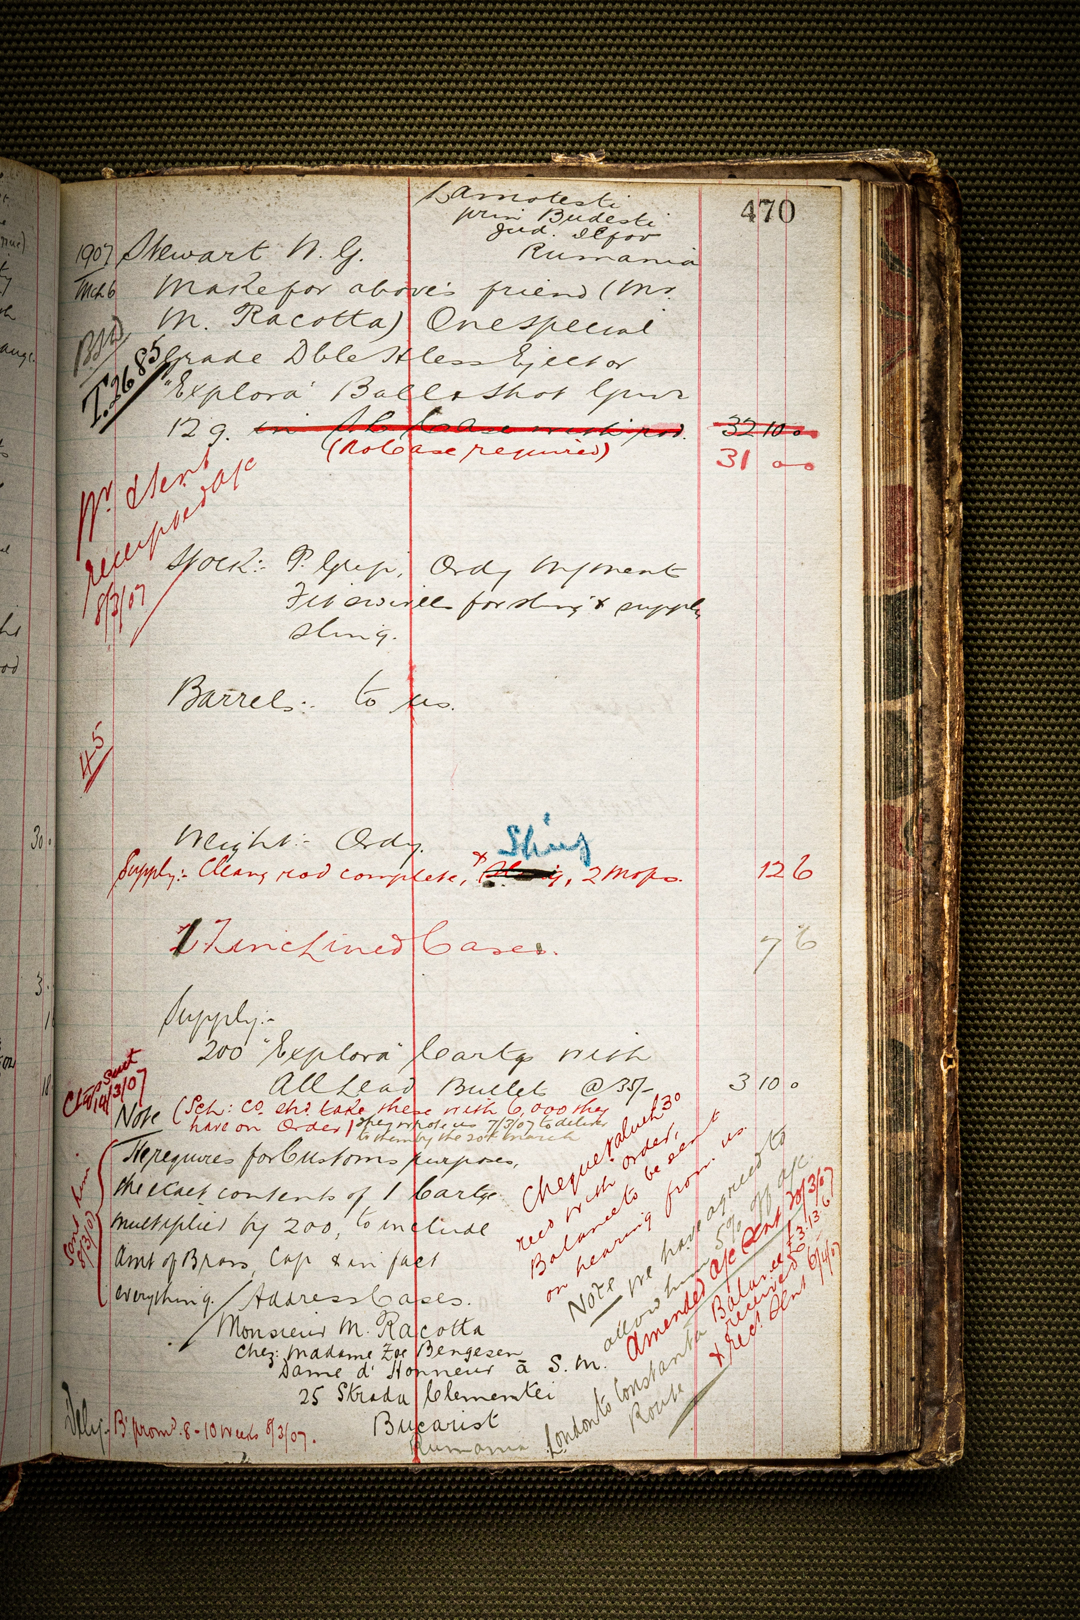 470
prin Budesti
Jud. Ilfov
Rumania
1907 Stewart N. G.
Mch 6 Make for above's friend (Mr.
M. Racotta) One special
T.2685
Grade Dble Hless Ejector
"Explora" Ball & Shot Gun
12 g. 32 10 0
(No Case required) 31 0 0
Wr & sent
receipted a/c
8/3/07
Stock:- P. Grip, Ordy
Fit swivels for sling & supply
sling.
Barrels:- to us.
45
Weight:- Ordy.
Sling
Supply:- Cleang rod complete, 2 Mops. 12 6
1 Zinc Lined Case. 7 6
Supply:-
200 "Explora" Cartgs with
All Lead Bullets @ 35/- 3 10 0
14/3/07
Note (Sch: Co. shd. take these with 6,000 they
have on Order) they wrote us 7/3/07 to deliver
to them by the 20th March
He requires for Customs purposes,
the exact contents of 1 Cartge
multiplied by 200, to include
Amt of Brass, Cap & in fact
everything. / Address Cases.
sent him
8/3/07
Monsieur M. Racotta
Chez: Madame Zoe Bengesen
Dame d' Honneur à S. M.
25 Strada Clementei
Bucarist
Rumania
Cheque value £30
recd with order,
Balance to be sent
on hearing from us.
Note we have agreed to
allow him 5% off a/c.
Amended a/c sent 20/3/07
Balance £3:13:6
received
& rect. sent 6/4/07
London to Constanta
Route
Dely:- B' prom'd. 8-10 weeks 8/3/07.